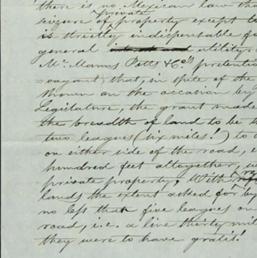 there is no Mexican law tha
private
seizure of property except w
is strictly indispensable fo
general utility.
Mc Manus
vagant that, in spite of the
shown on the occasion by
Legislature, the grant made
the breadth of land to be t
two leagues (six miles!) to
on either side of the road, i
hundred feet altogether, w
private property, With re
lands the extent asked for by
no less than five leagues on
road, i.e. a line thirty mil
they were to have gratis!